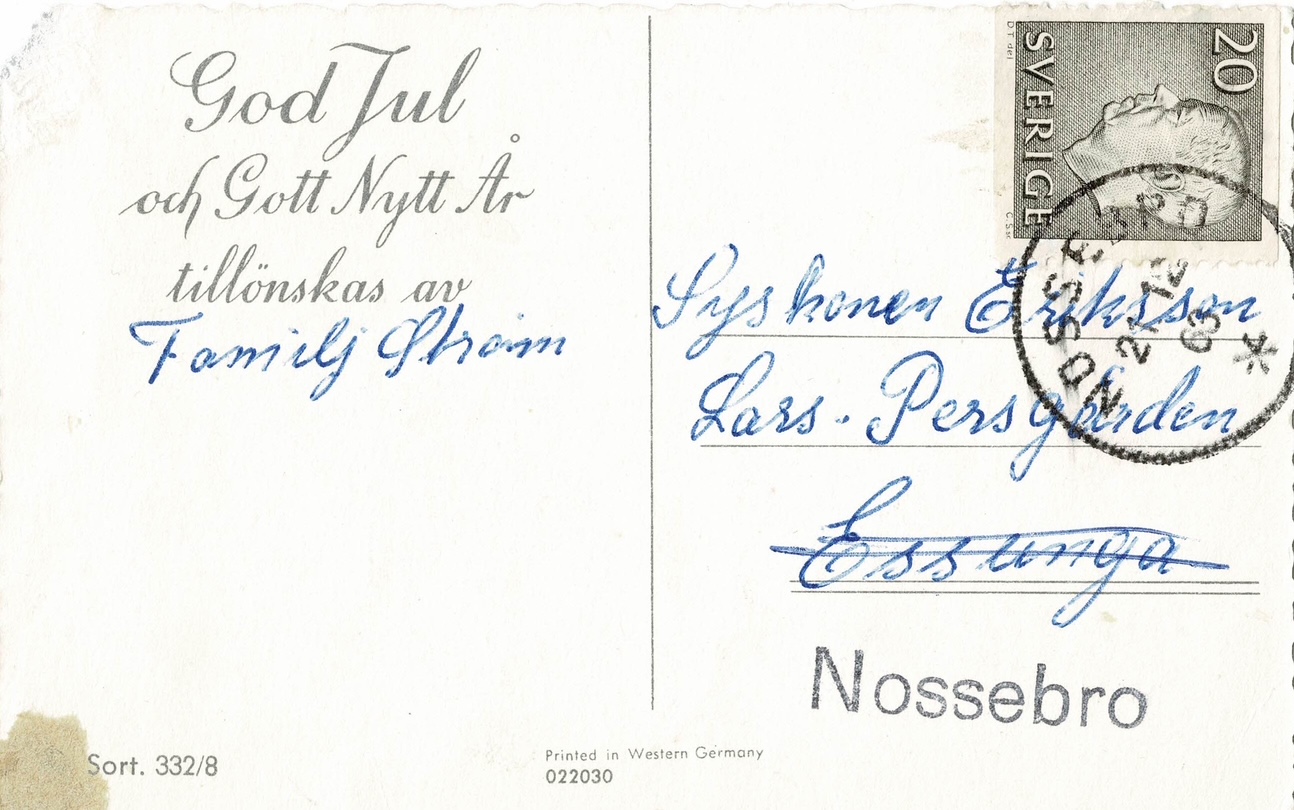 God Jul
och Gott Nytt År
tillönskas av
Familj Ström
Sort. 332/8
Printed in Western Germany
022030
20
SVERIGE
NOSSEBRO
21 12
63
Syskonen Eriksson
Lars-Persgården
Essunga
Nossebro